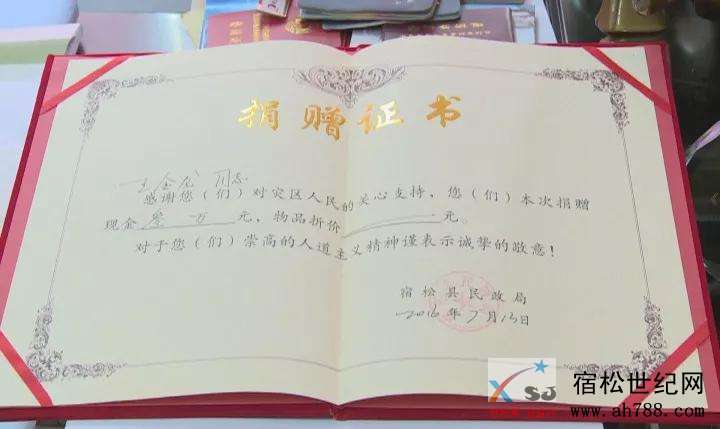 捐赠证书
王金龙 同志
感谢您(们)对灾区人民的关心支持,您(们)本次捐赠
现金 壹万 元,物品折价 元。
对于您(们)崇高的人道主义精神谨表示诚挚的敬意!
宿松县民政局
2016年7月13日
XSJ
宿松世纪网
www.ah788.com